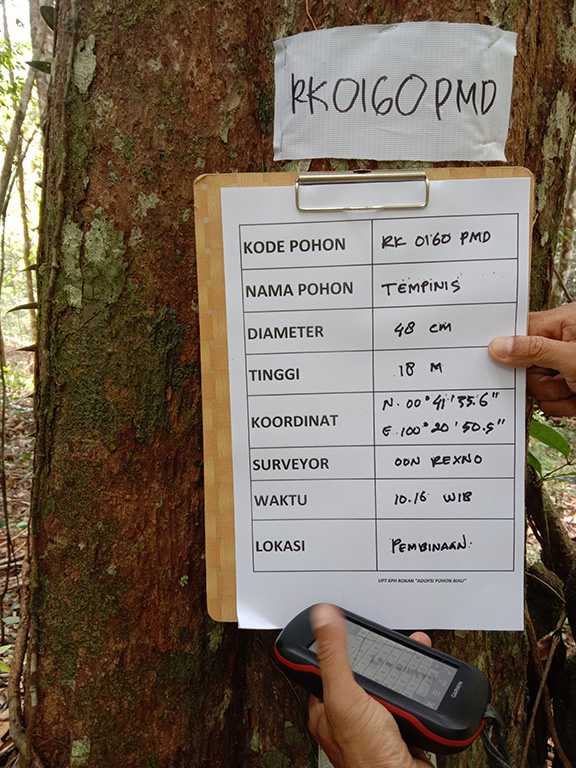 RK0160PMD
KODE POHON RK 0160 PMD
NAMA POHON TEMPINIS
DIAMETER 48 cm
TINGGI 18 M
KOORDINAT N. 00° 41' 35.6"
E. 100° 20' 50.5"
SURVEYOR ODN REXNO
WAKTU 10.16 WIB
LOKASI PEMBINAAN.
UPT KPH ROKAN "ADOPSI POHON RIAU"
GARMIN